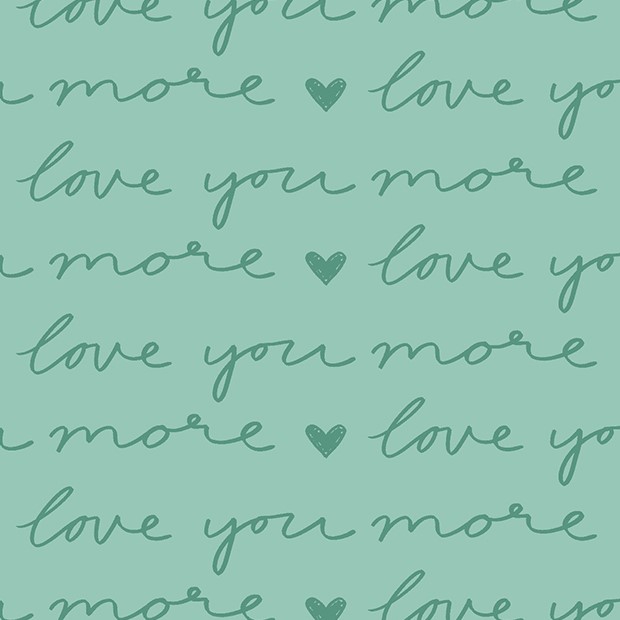 love you more
u more love yo
love you more
u more love yo
love you more
u more love yo
love you more
u more love yo